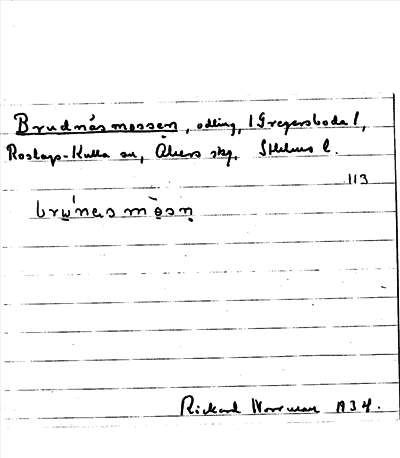 Brudnäsmossen, odling, (Gregersboda),
Roslags-Kulla sn, Åkers skg, Sthlms l.
113
Rickard Norrman 1934.